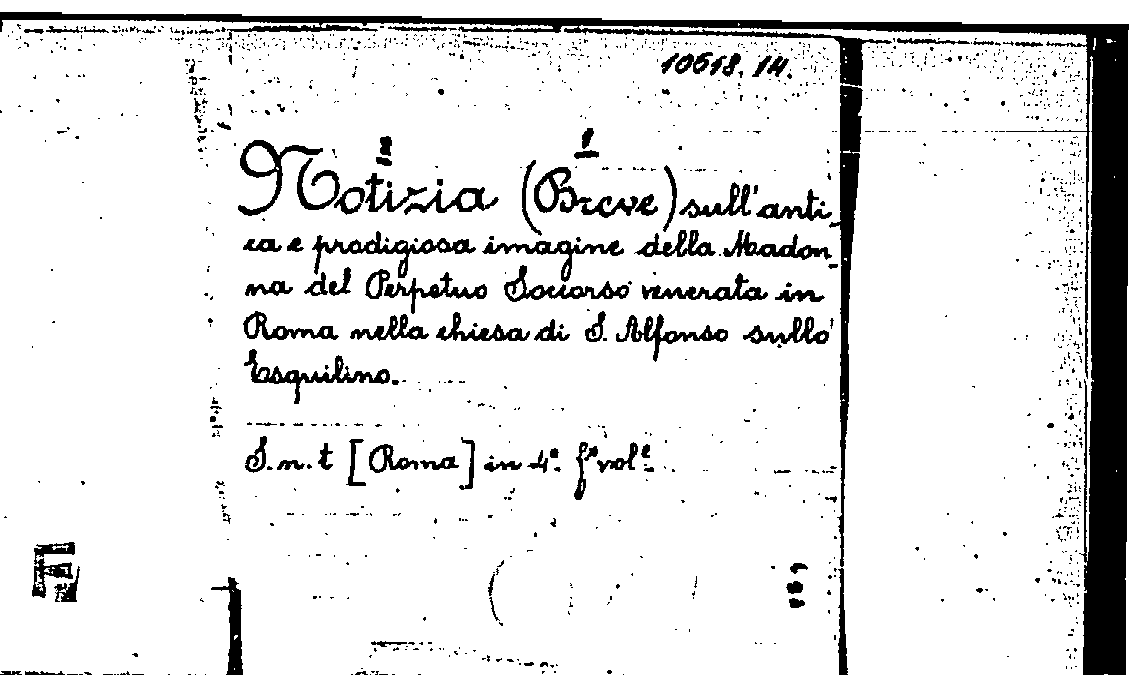 10618.14.
Notizia (Breve) sull'anti-
ca e prodigiosa imagine della Madon-
na del Perpetuo Soccorso venerata in
Roma nella chiesa di S. Alfonso sullo
Esquilino.
S.n.t [Roma] in 4º. fº volº.